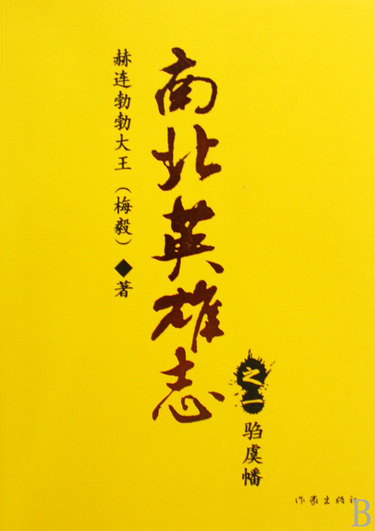 南北英雄志
赫连勃勃大王（梅毅）◆著
之一
驺虞幡
作家出版社
B